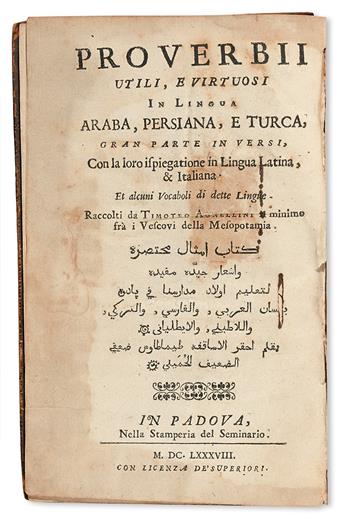 PROVERBII
UTILI, E VIRTUOSI
IN LINGUA
ARABA, PERSIANA, E TURCA,
GRAN PARTE IN VERSI,
Con la loro ispiegatione in Lingua Latina,
& Italiana.
Et alcuni Vocaboli di dette Lingue.
Raccolti da TIMOTEO AGNELLINI minimo
frà i Vescovi della Mesopotamia.
كتاب امثال مختصرة
واشعار جيده مفيده
لتعليم اولاد مدارسنا في پادوا
بلسان العربي، والفارسي، والتركي،
واللاطيني، والايطلياني
بقلم احقر الاساقفه طيماطاوس ضعيفي
الضعيف
IN PADOVA,
Nella Stamperia del Seminario.
M. DC. LXXXVIII.
CON LICENZA DE' SUPERIORI.